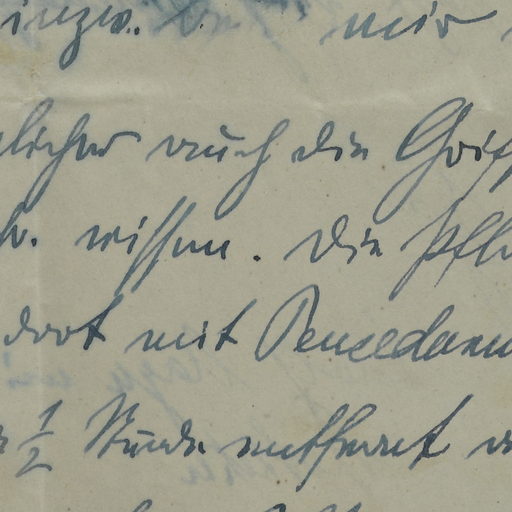 inzw. mir
licher auch die Grif
wissen. Die Pfl
dort mit Peucedanu
½ Stunde entfernt